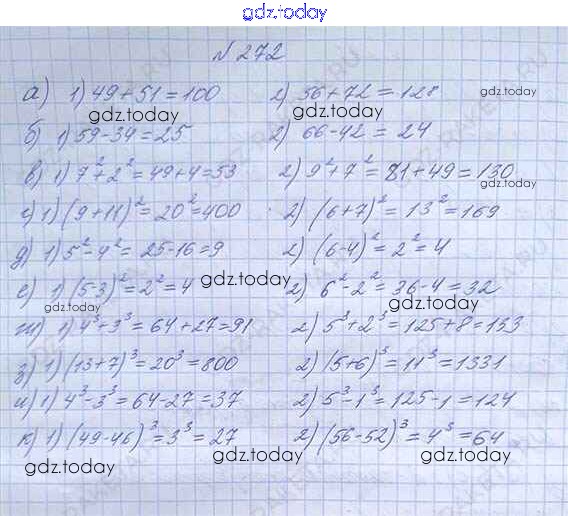 gdz.today
№ 272
а) 1) 49+51=100 2) 56+72=128
gdz.today
gdz.today
б) 1) 59-34=25 2) 66-42=24
gdz.today
в) 1) 7²+2²=49+4=53 2) 9²+7²=81+49=130
gdz.today
г) 1) (9+11)²=20²=400 2) (6+7)²=13²=169
д) 1) 5²-4²=25-16=9 2) (6-4)²=2²=4
е) 1) (5-3)²=2²=4 2) 6²-2²=36-4=32
gdz.today
gdz.today
ж) 1) 4³+3³=64+27=91 2) 5³+2³=125+8=133
з) 1) (13+7)³=20³=800 2) (5+6)³=11³=1331
и) 1) 4³-3³=64-27=37 2) 5³-1³=125-1=124
к) 1) (49-46)³=3³=27 2) (56-52)³=4³=64
gdz.today gdz.today gdz.today